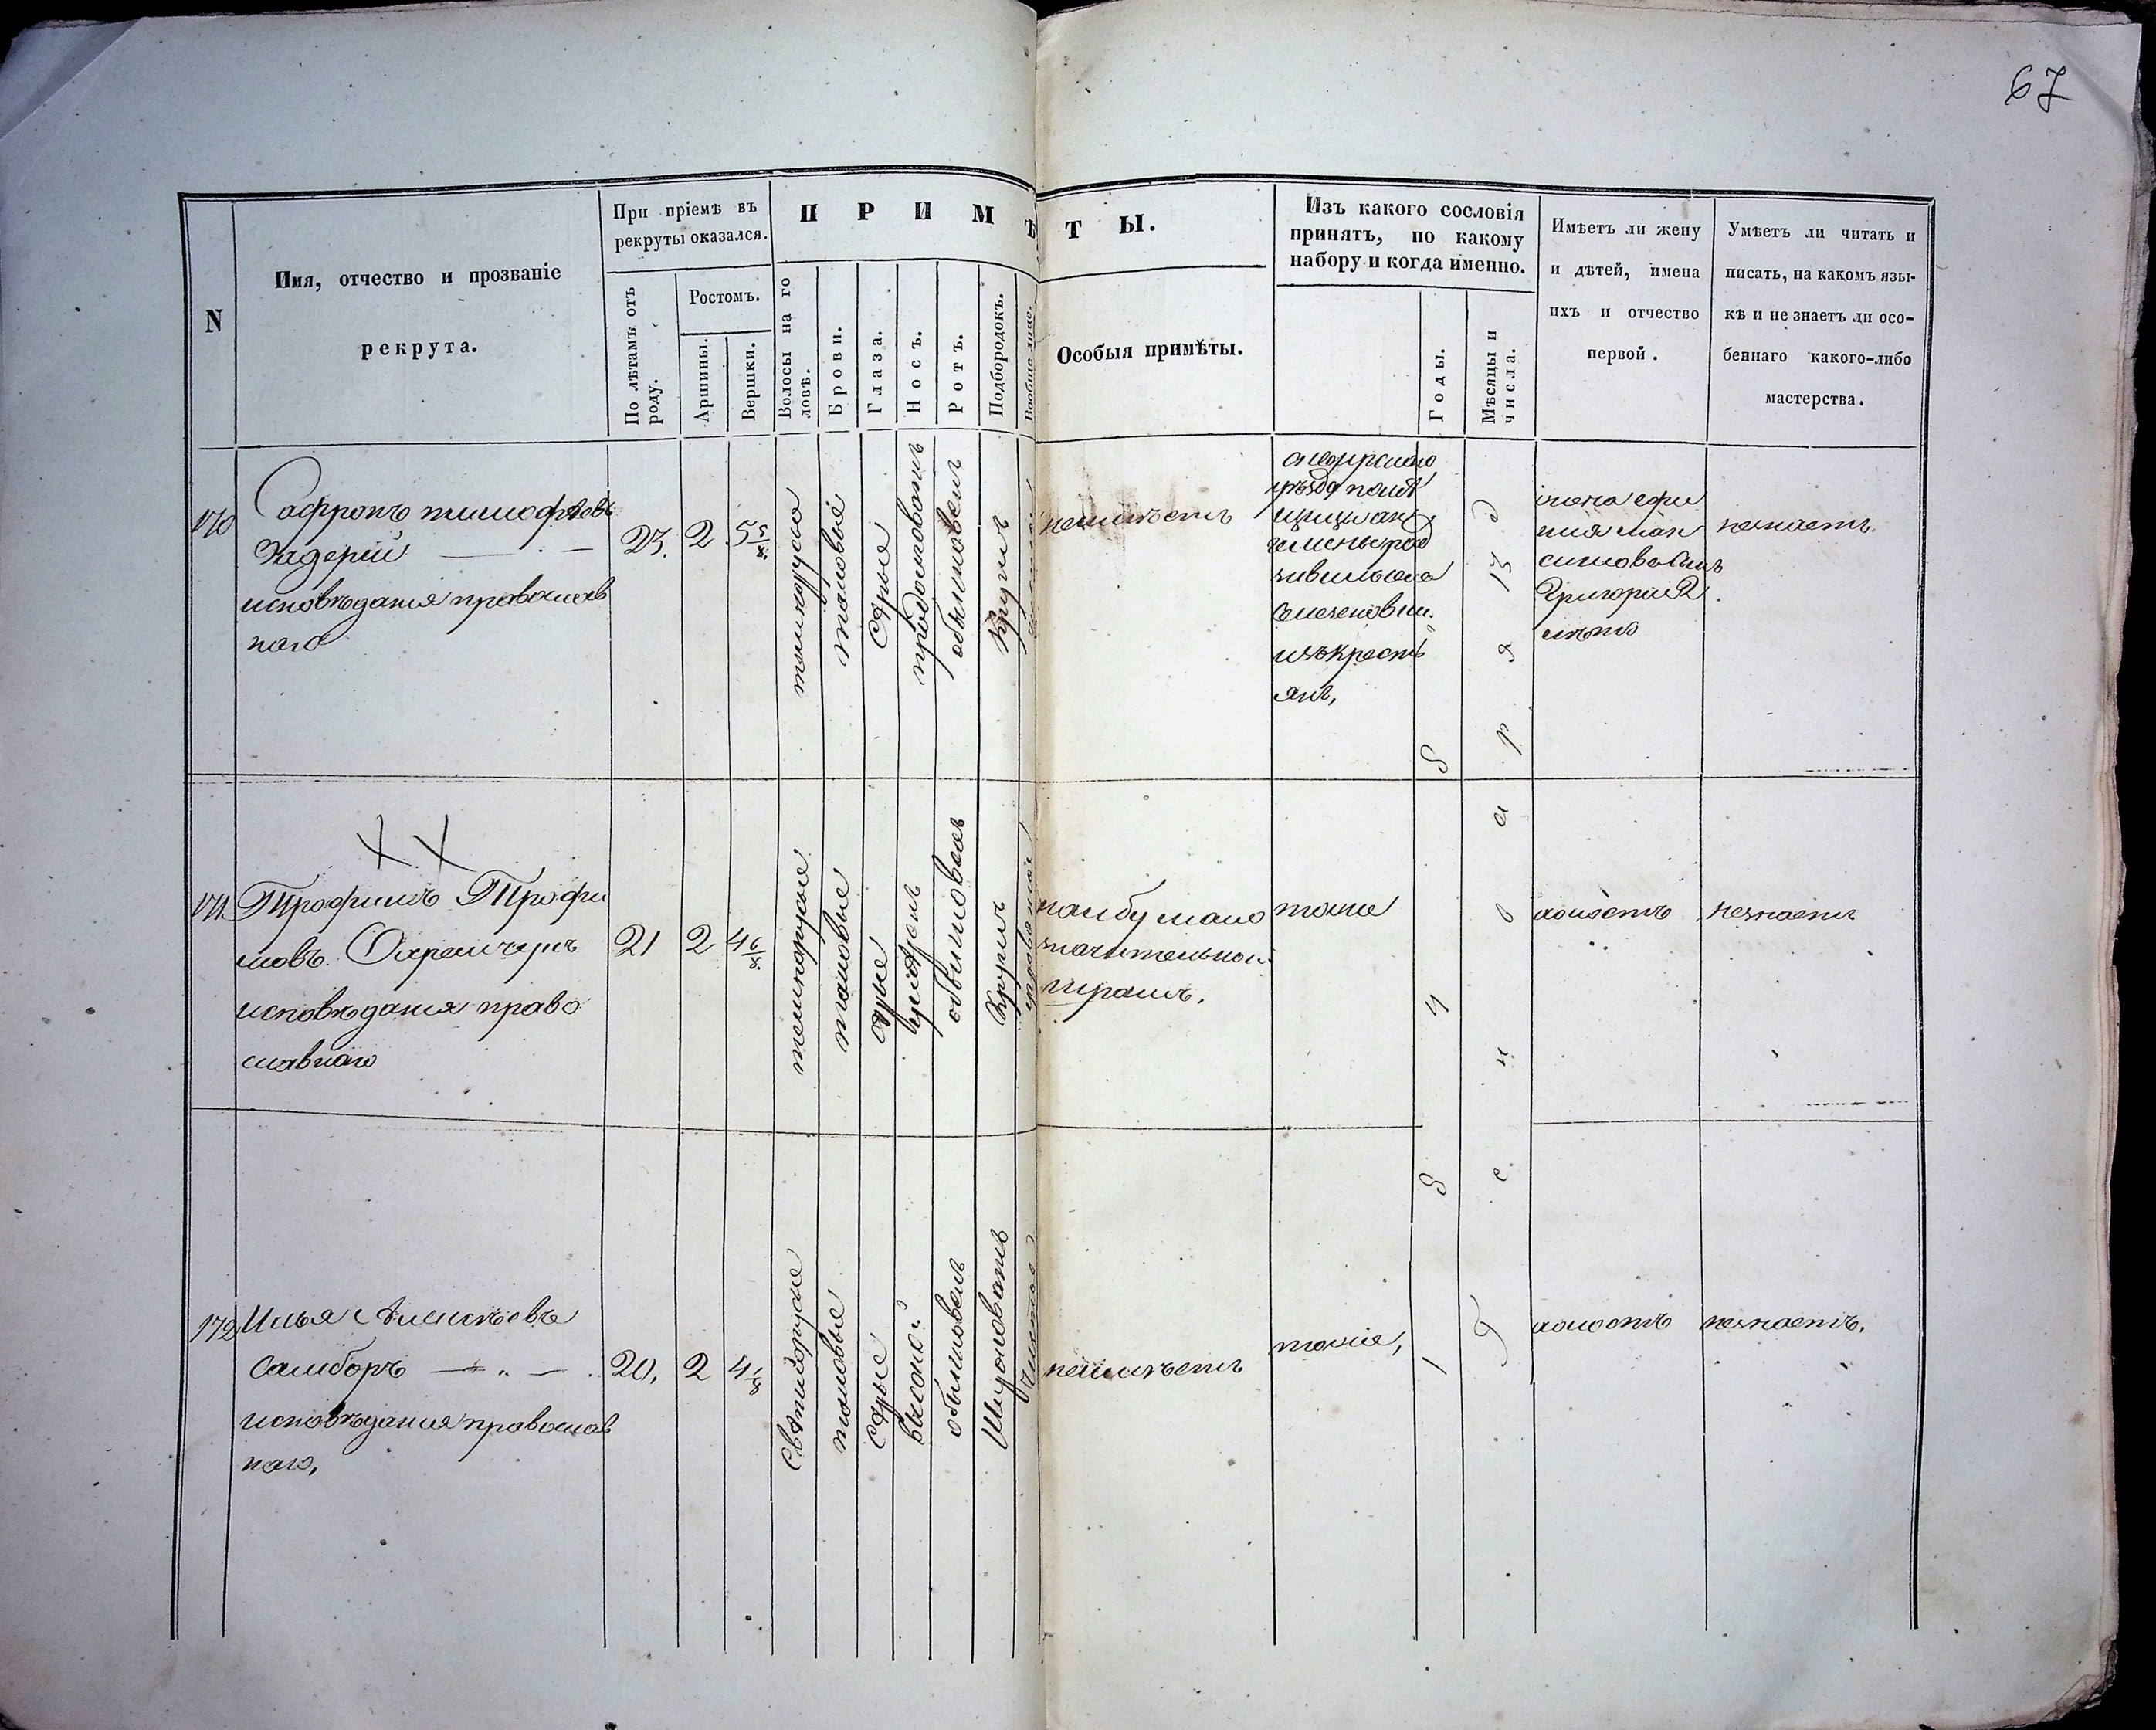 67
N
Имя, отчество и прозваніе
рекрута.
При пріемѣ въ
рекруты оказался.
По лѣтамъ отъ
роду.
Ростомъ.
Аршины.
Вершки.
П Р И М Ѣ Т Ы.
Волосы на го
ловѣ.
Брови.
Глаза.
Носъ.
Ротъ.
Подбородокъ.
Вообще лице.
Особыя примѣты.
Изъ какого сословія
принятъ, по какому
набору и когда именно.
Годы.
Мѣсяцы и
числа.
Имѣетъ ли жену
и дѣтей, имена
ихъ и отчество
первой.
Умѣетъ ли читать и
писать, на какомъ язы-
кѣ и не знаетъ ли осо-
беннаго какого-либо
мастерства.
170
Сафронъ тимофѣевъ
Задерей
исповѣданія православ
наго
23.
2
5 5/8.
темнорусы
таковыя
Сѣрые
продолговатъ
обыкновенъ
Круглъ
неимѣетъ
уѣзда помѣ
щицы
изъ крестъ
янъ,
жена ефи
мія Мак
симова сынъ
Григорій 2
лѣтъ
незнаетъ.
171.
Трофимъ Трофи
мовъ Охремчукъ
исповѣданія право
славнаго
21
2
4 6/8.
темнорусые
таковые
сѣрые
обыкновенъ
Круглъ
на лбу мало
значительной
шрамъ.
тоже
холостъ
незнаетъ
172
Илья Алексѣевъ
Самборъ — „ —
исповѣданія православ
наго,
20,
2
4 1/8
Свѣтлорусые
таковые
Сѣрые
высокой
обыкновенъ
Шуроловатъ
чистое
неимѣетъ
тоже,
холостъ
незнаетъ,
1 8 4 8
Генваря 13 д